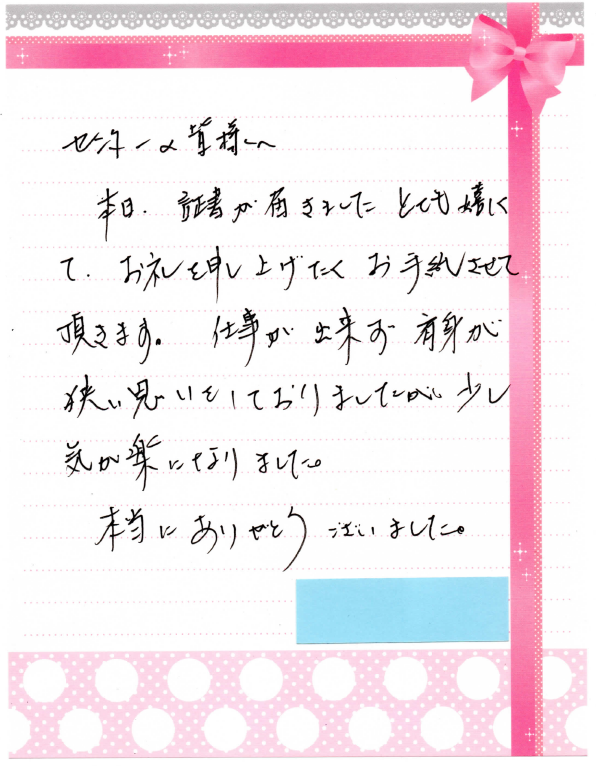 センターの皆様へ
本日、証書が届きました とても嬉しく
て、お礼を申し上げたくお手紙させて
頂きます。 仕事が出来ず 肩身が
狭い思いをしておりましたが 少し
気が楽になりました。
本当にありがとうございました。